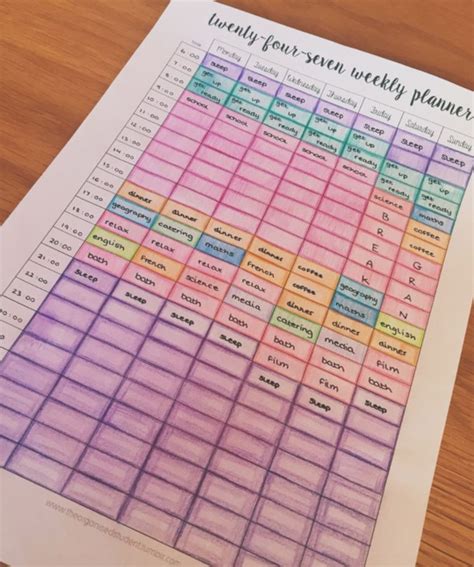 twenty-four-seven weekly planner
Time Monday Tuesday Wednesday Thursday Friday Saturday Sunday
6:00 sleep sleep sleep sleep sleep sleep sleep
7:00 get up get up get up get up get up get up get up
8:00 get ready get ready get ready get ready get ready get ready get ready
school school school school school science maths
10:00 B coffee
11:00 R coffee
12:00 E G
13:00 A R
14:00 K A
15:00 N
16:00 dinner dinner dinner dinner coffee geography english
17:00 geography catering maths french coffee maths dinner
18:00 relax relax relax relax dinner dinner film
19:00 english french science media catering media bath
20:00 bath bath bath bath bath film sleep
21:00 sleep sleep sleep sleep film bath
22:00 sleep sleep
23:00
www.theorganisedstudent.tumblr.com